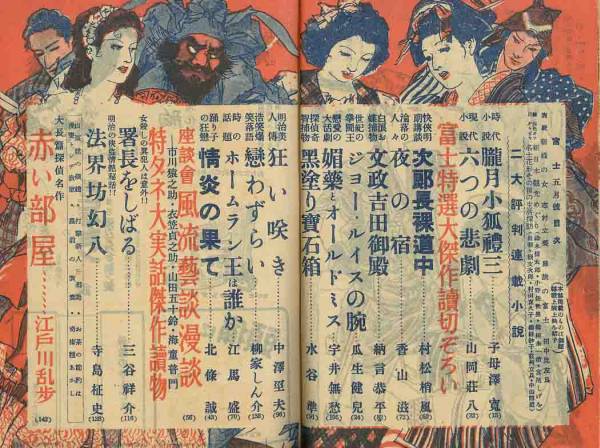 富士五月號目次
二大評判連載小説
時代小説 朧月小狐禮三 子母澤寛
現代小説 六つの悲劇 山岡荘八
富士特選大傑作讀切ぞろい
次郎長裸道中 村松梢風
夜の宿 香山滋
文政吉田御殿 納言恭平
世紀の拳闘王 ジョー・ルイスの腕 瓜生健兒
媚藥とオールドミス 宇井無愁
探偵奇智捕物 黑塗り寶石箱 水谷準
明治美人傳 狂い咲き 中澤巠夫
浩笑爆笑落語 戀わずらい 柳家しん介
時の話題 ホームラン王は誰か 江馬盛
踊り子の狂戀 情炎の果て 北條誠
座談會 風流藝談漫談
市川猿之助・衣笠貞之助・山田五十鈴・海童普門
特タネ大実話傑作讀物
女殺しの眞犯人は意外!!
署長をしばる 三谷祥介
法界坊幻八 寺島柾史
大長篇探偵名作
赤い部屋……江戸川乱歩